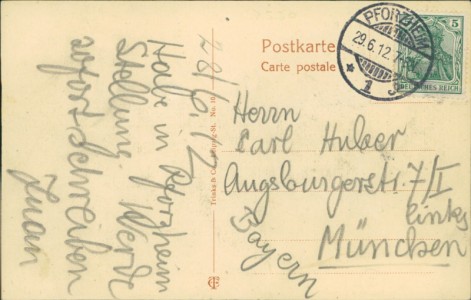 28/6.12
Habe in Pforzheim
Stellung. Werde
sofort schreiben
Postkarte
Carte postale
PFORZHEIM
29.6.12.7-
* 1
5
DEUTSCHES REICH
Herrn
Carl Huber
Augsburgerstr. 7/I
links
München
Bayern